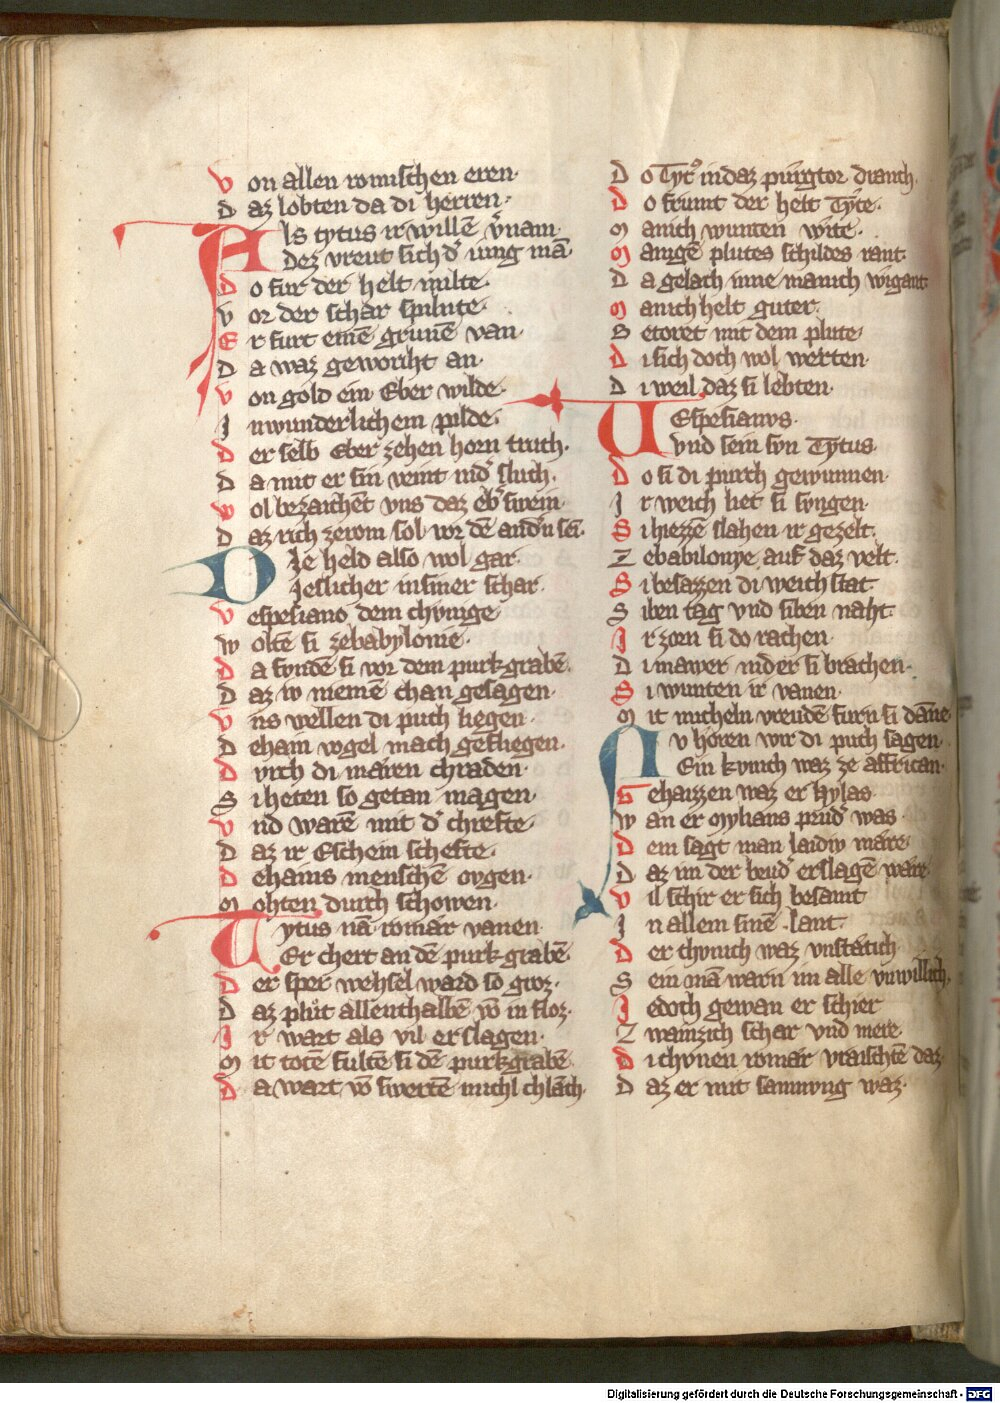 Von allen romischen eren·
Daz lobten da di herren·
Als tytus ir willē v̄nam·
Dez vreut sich d' iung mā·
Do fur der helt milte·
Vor der schar spilnte·
Er furt einē grunē van·
Da waz geworiht an·
Von gold ein Eber wilde·
In wunderlichem pilde·
Der selb Eber zehen horn truch·
Da mit er sin veint nid' sluch·
Wol bezaichēt vns daz eb' swein·
Daz rich zerom sol vor dē and'n sei·
Die held also wol gar·
Jeslicher in siner schar·
Vespesiano dem chvnige·
Woltē si zebabylonie·
Da fundē si vor dem purkgrabē·
Daz iv niemē chan gesagen·
Vns wellen di puch liegen·
Dehain vogel mach gefliegen·
Dvrch di maren chraden·
Si heten so getan magen·
Vnd warē mit d' chrefte·
Daz ir Eschein schefte·
Dehains menschē ovgen·
Mohten durch schowen·
Tytus nā romār vanen
Er chert an dē purkgrabē·
Der sper wehsel ward so groz·
Daz plůt allenthalbē vō in floz·
Ir wart als vil erslagen·
Mit totē fultē si dē purkgrabē·
Da wart vō swertē michl chlāch·
Do Tyt9 in daz purgtor dranch·
Do frumt der helt Tyte·
Manich wunten wite·
Manigē plutes schildes rant·
Da gelach inne manich wigant
Manich helt guter·
Betoret mit dem plute·
Di sich doch wol werten·
Di weil daz si lebten·
Vespesianvs·
Vnd sein svn Tytus·
Do si di purch gewunnen·
Ir weich liet si syngen·
Si hiezzē slahen ir gezelt·
Zebabilonye auf daz velt·
Si besazzen di weichstat
Siben tag vnd siben naht·
Ir zorn si do rachen·
Di mawer nider si brachen·
Si wunten ir vanen·
Mit micheln vreudē furn si dāne·
Nv horen wir di puch sagen·
Ein kvnich waz ze affrican·
Gehaizzen waz er hylas·
Wan er Mylians prud' was·
Dem sagt man laidiv māre·
Daz im der brud' erslagē wāre·
Vil schir er sich besamt
In allem sinē lant·
Der chvnich waz vnstātich·
Sein mā warn im alle vnwillich·
Jedoch gewan er schier
Zwainzich schar vnd mere·
Di chvnen romar vraischtē daz
Daz er mit samnvng waz·
Digitalisierung gefördert durch die Deutsche Forschungsgemeinschaft - DFG